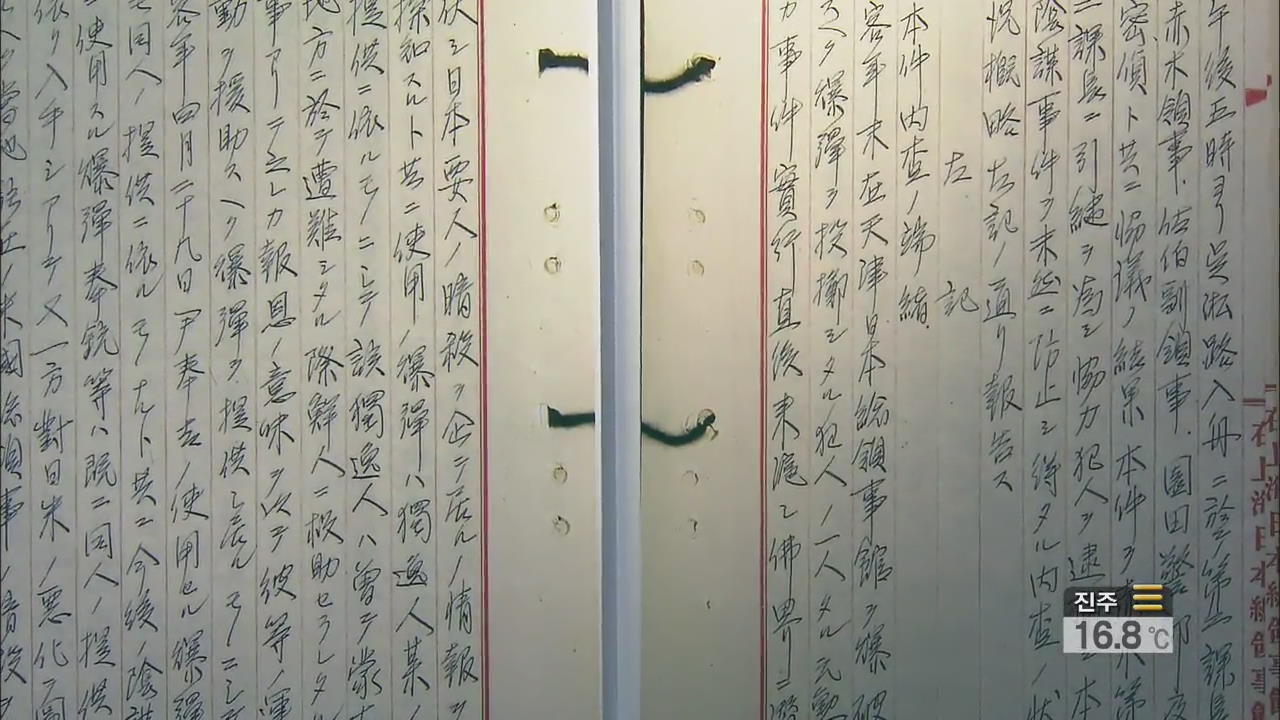 午後五時ヨリ呉淞路入舟ニ於テ第二課長
赤木領事、佐伯副領事、園田警部
密偵ト共ニ協議ノ結果本件ヲ
課長ニ引継ヲ為シ協力犯人ヲ逮
陰謀事件ヲ未然ニ防止シ得タル内査ノ状
況概略左記ノ通リ報告ス
左記
本件内査ノ端緒
客年末在天津日本総領事館ヲ爆破
スヘク爆弾ヲ投擲シタル犯人ノ一人タル
カ事件實行直後来滬シ佛界ニ潜
伏シ日本要人ノ暗殺ヲ企テ居ルノ情報ヲ
探知スルト共ニ使用ノ爆彈ハ獨逸人某ノ
提供ニ依ルモノニシテ該獨逸人ハ曽テ蒙古
地方ニ於テ遭難シタル際鮮人ニ救助セラレタル
事アリテ之レカ報恩ノ意味ヲ以テ彼等ノ運
動ヲ援助スヘク爆彈ヲ提供シ居ル モノニシテ
客年四月二十九日尹奉吉ノ使用セル爆彈
モ同人ノ提供ニ依ルモノナルト共ニ今後ノ陰謀
ニ使用スル爆彈拳銃等ハ既ニ同人ノ提供
依リ入手シアリテ又一方對日米ノ悪化ヲ圖
米國総領事ノ暗殺ヲ
在上海日本総領事館
진주
16.8℃